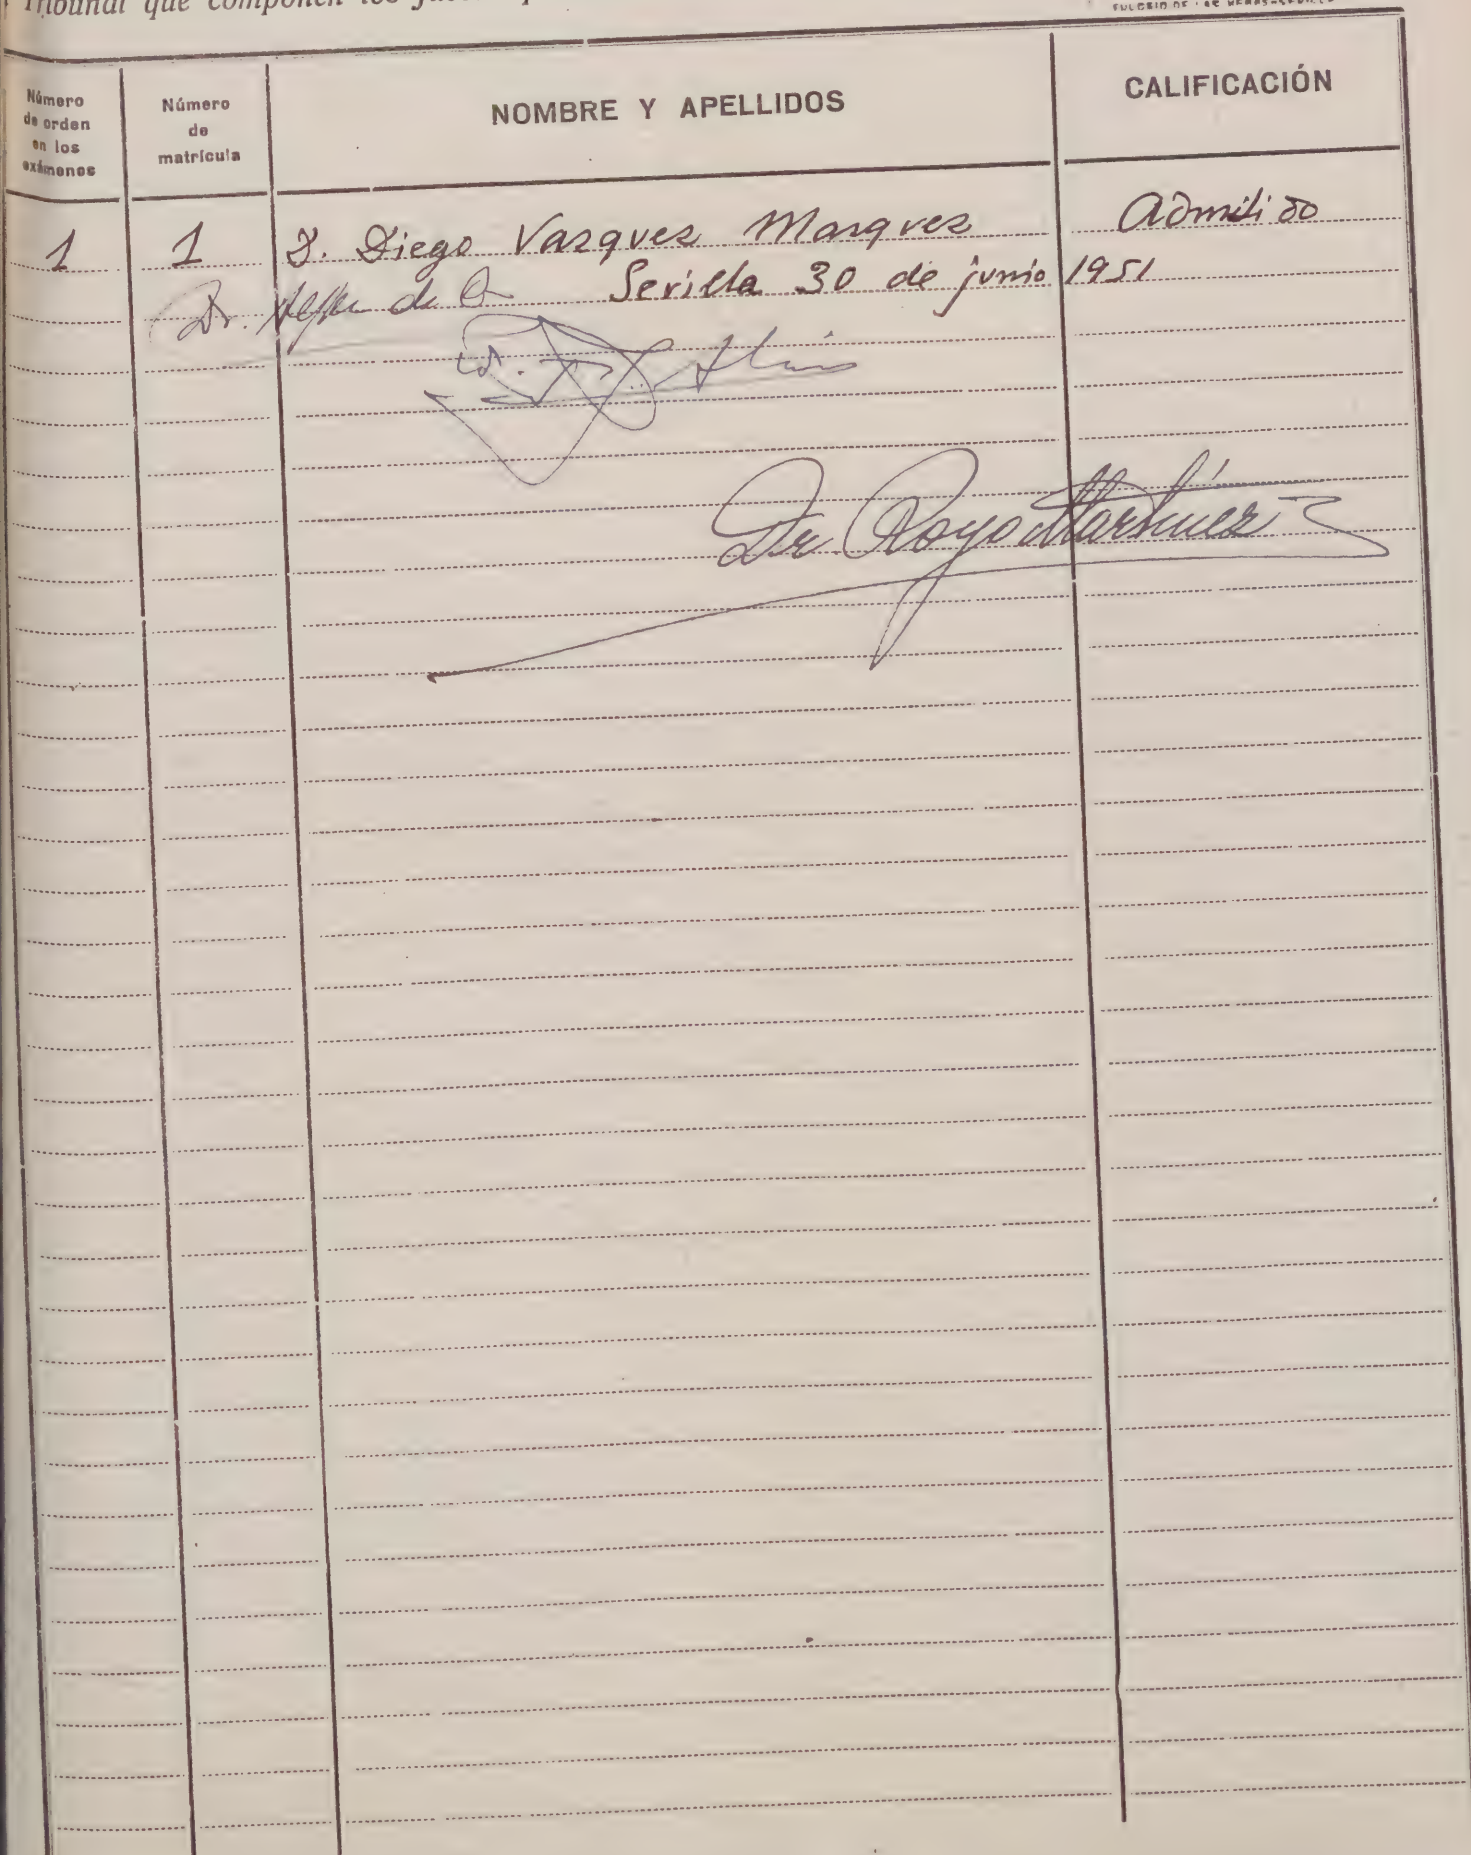 Tribunal que componen los
Número de orden en los exámenes
Número de matrícula
NOMBRE Y APELLIDOS
CALIFICACIÓN
1 1 D. Diego Vazquez Marquez Admitido
Sevilla 30 de junio 1951
Dr.
Dr. Royo Martínez